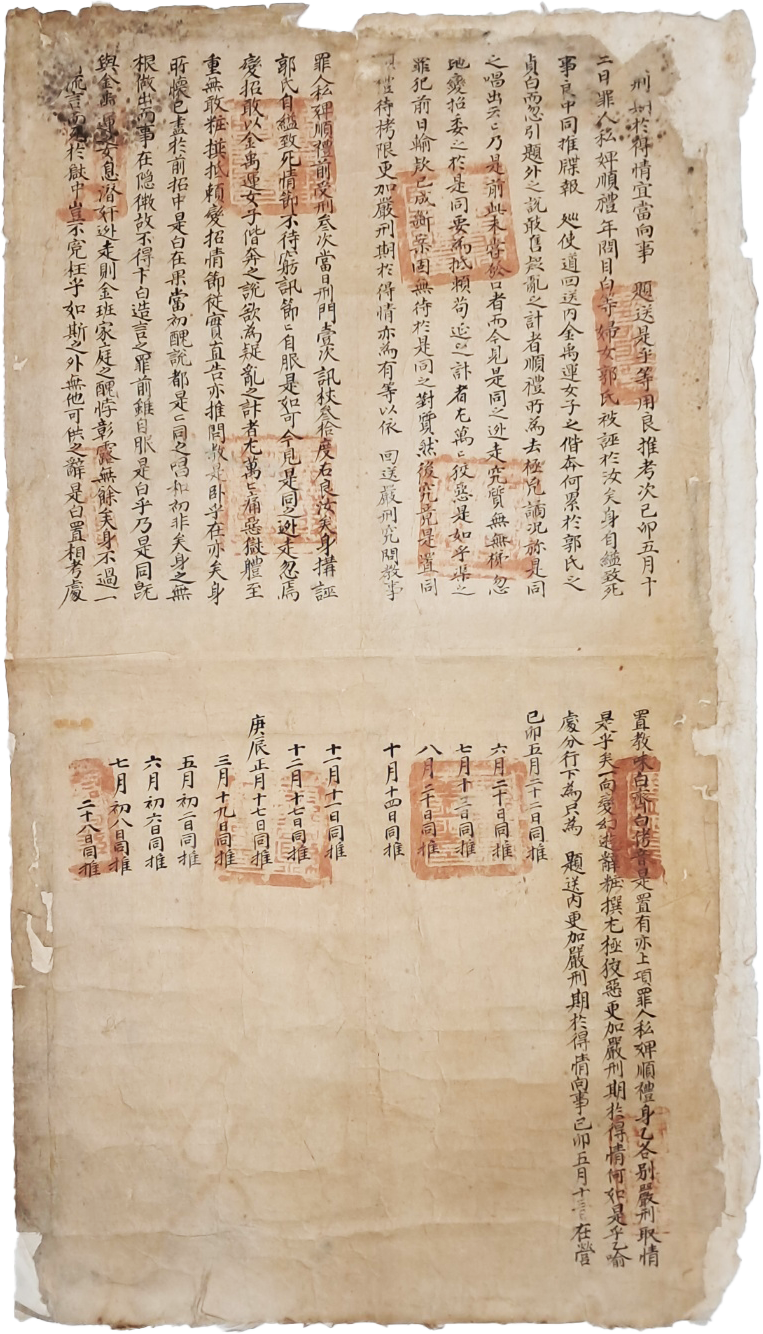 刑期於得情宜當向事 題送是乎等用良推考次己卯五月十
二日罪人私婢順禮年問目白等婦女郭氏被誣於汝矣身自縊致死
事良中同推牒報 巡使道回送內金禹運女子之偕奔何累於郭氏之
貞白而忽引題外之說敢售疑亂之計者順禮所為去極兇譎況旀是同
之唱出云云乃是前此未嘗發口者而今見是同之逃走究質無無憑忽
地變招委之於是同要為抵賴苟延之計者尤萬萬狡惡是如乎渠之
罪犯前日輸款已成斷案固無待於是同之對質然後究竟是置同
待拷限更加嚴刑期於得情亦為有等以依 回送嚴刑究問教事
罪人私婢順禮前受刑叄次當日刑門壹次訊杖叄拾度右良汝矣身搆誣
郭氏自縊致死情節不待窮訊節節自服是如可今見是同之逃走忽焉
變招敢以金禹運女子偕奔之說欲為疑亂之計者尤萬萬痛惡獄體至
重無敢粧撰抵賴變招情節從實直告亦推問教是臥乎在亦矣身
所懷已盡於前招中是白在果當初醜說都是是同之唱和初非矣身之無
根做出而事在隱微故不得下白造言之罪前雖自服是白乎乃是同旣
與金禹運女息潛奸逃走則金班家庭之醜悖彰露無餘矣身不過一
流言而死於獄中豈不冤枉乎如斯之外無他可供之辭是白置相考處
置教味白齊白侤音是置有亦上項罪人私婢順禮身乙各別嚴刑取情
是乎矣一向變幻造辭粧撰尤極狡惡更加嚴刑期於得情何如是乎乙喻
處分行下為只為 題送內更加嚴刑期於得情向事己卯五月十三日在營
己卯五月二十二日同推
六月二十日同推
七月十三日同推
八月二十日同推
十月十四日同推
十一月十一日同推
十二月十七日同推
庚辰正月十七日同推
三月十九日同推
五月初二日同推
六月初六日同推
七月初八日同推
二十八日同推